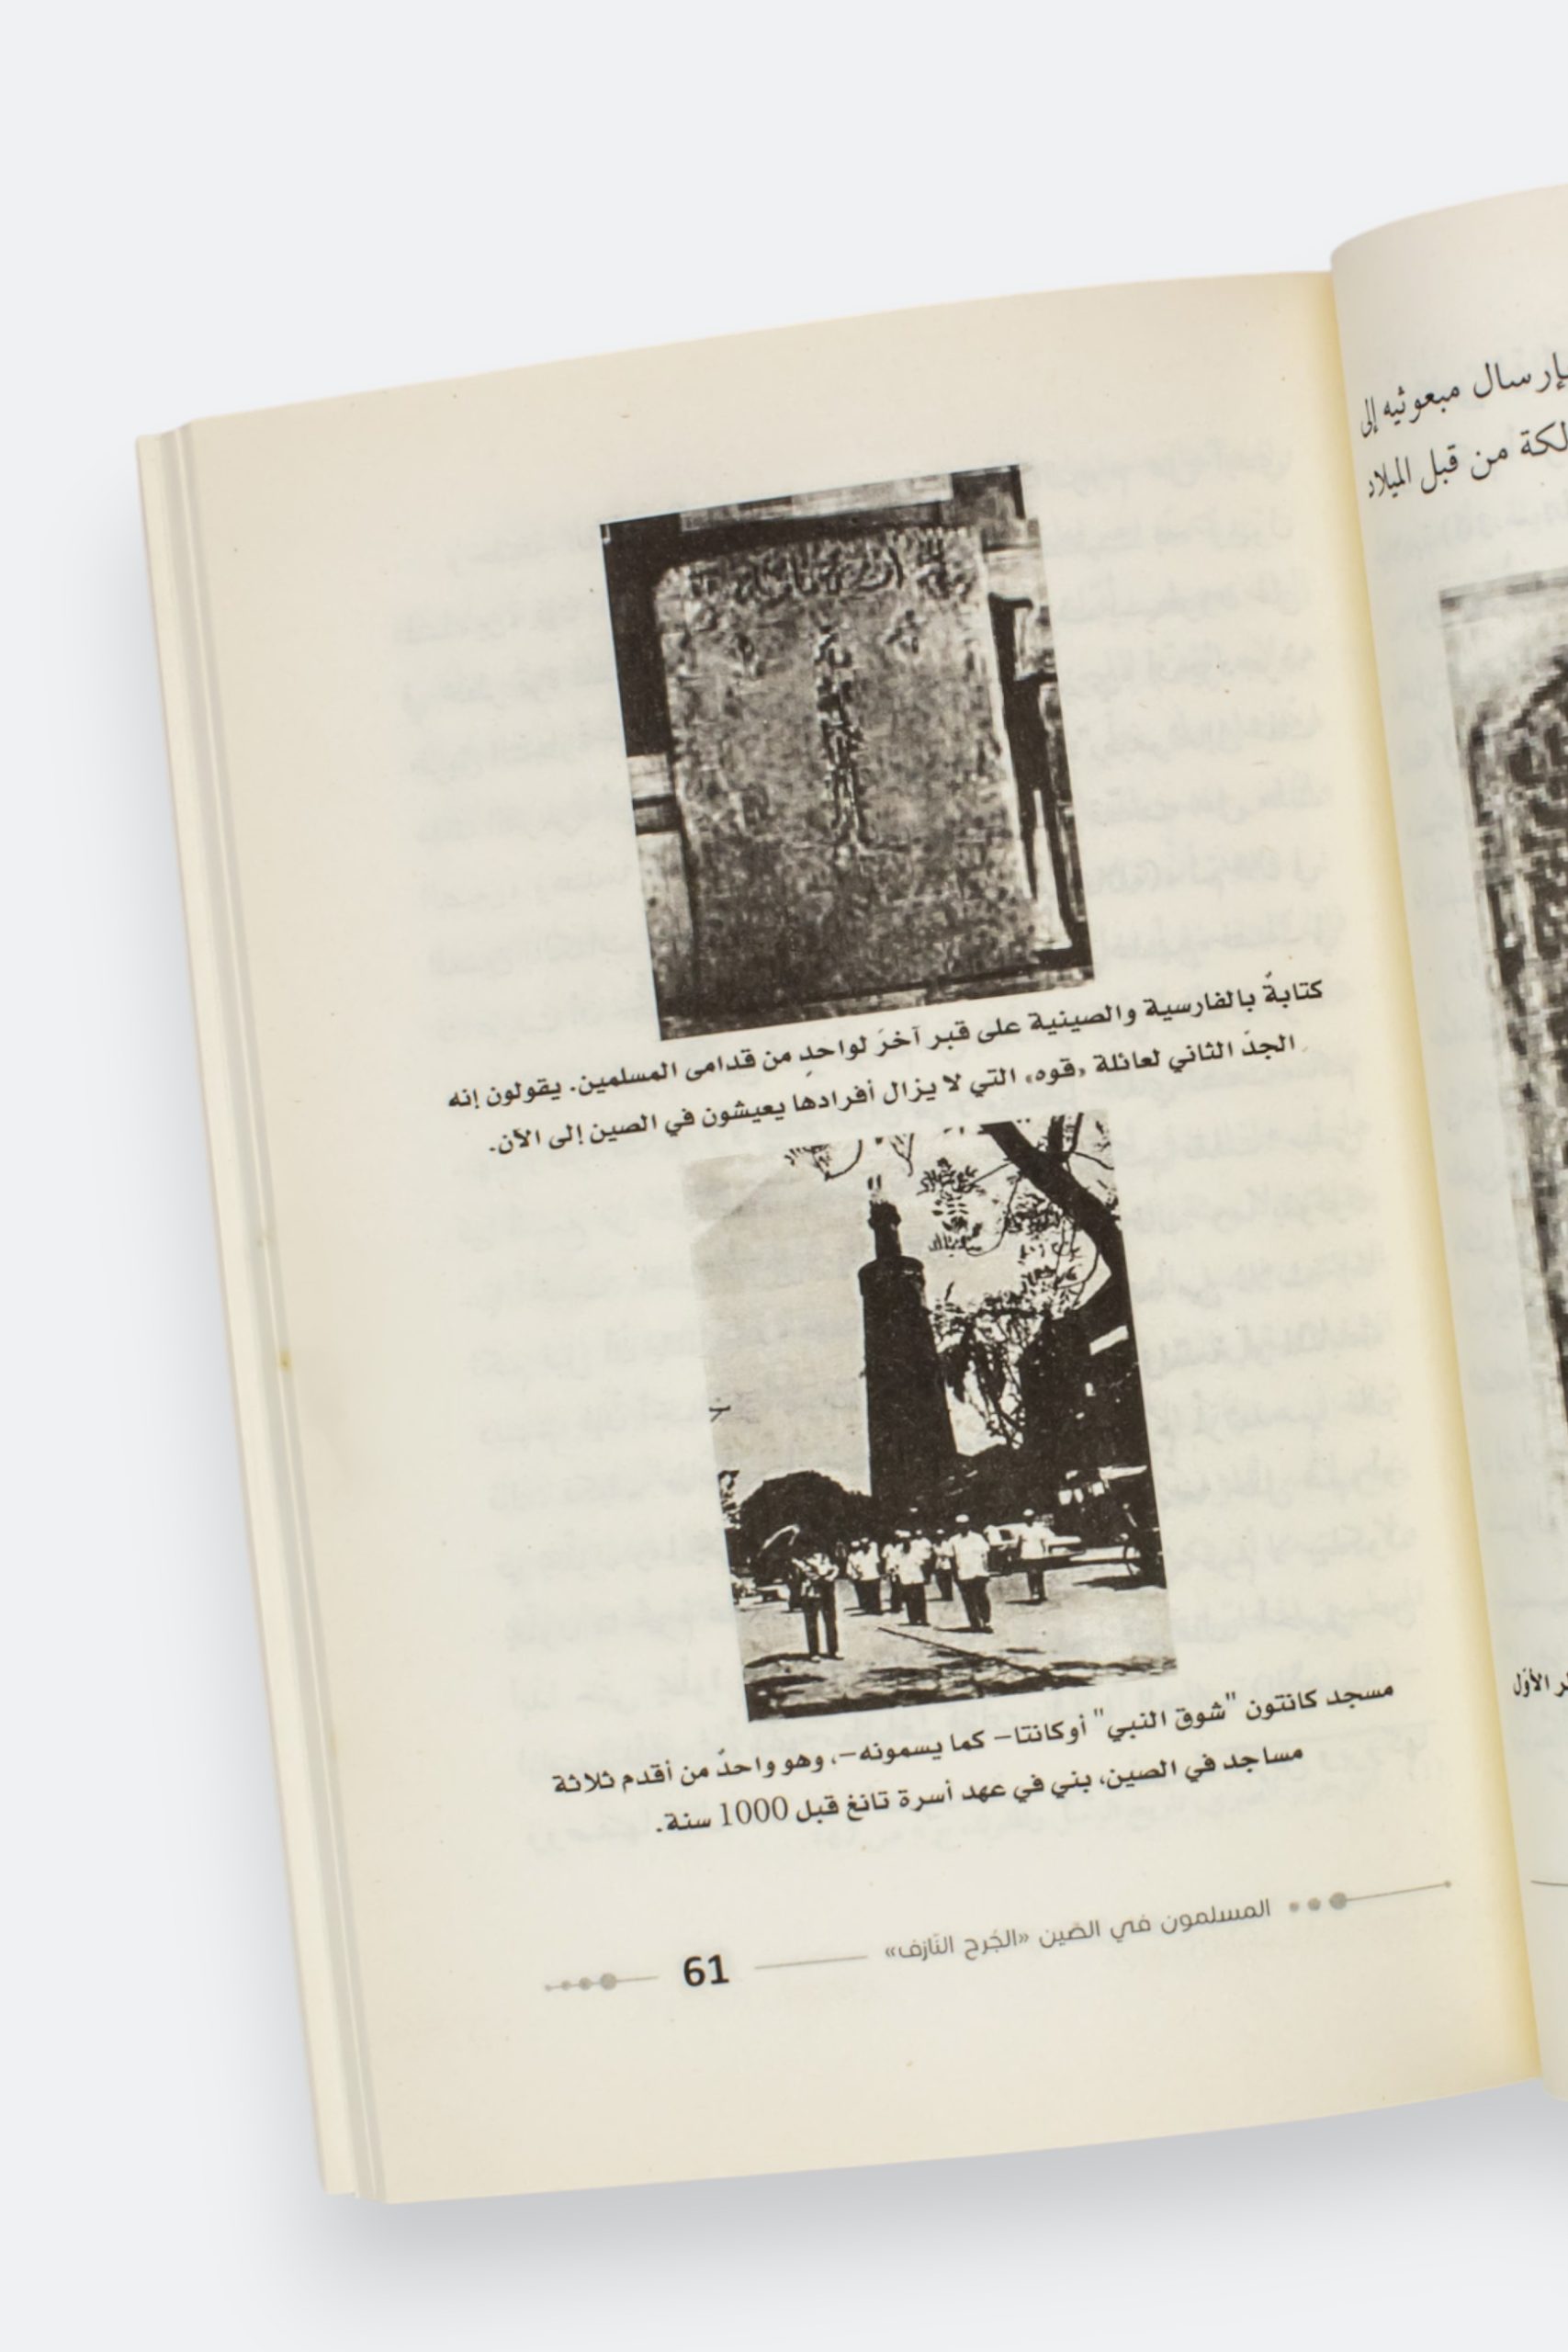 كتابةٌ بالفارسية والصينية على قبر آخرَ لواحدٍ من قدامى المسلمين. يقولون إنه
الجدّ الثاني لعائلة «قوه» التي لا يزال أفرادها يعيشون في الصين إلى الآن.
مسجد كانتون "شوق النبي" أو كانتا– كما يسمونه–، وهو واحدٌ من أقدم ثلاثة
مساجد في الصين، بني في عهد أسرة تانغ قبل 1000 سنة.
المسلمون في الصّين «الجُرح النّازف»
61
بإرسال مبعوثيه إلى
من قبل الميلاد
الأوّل